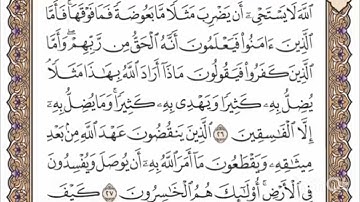 اللَّهَ لَا يَسْتَحْيِۦٓ أَن يَضْرِبَ مَثَلًا مَّا بَعُوضَةً فَمَا فَوْقَهَا ۚ فَأَمَّا
الَّذِينَ ءَامَنُوا۟ فَيَعْلَمُونَ أَنَّهُ الْحَقُّ مِن رَّبِّهِمْ ۖ وَأَمَّا
الَّذِينَ كَفَرُوا۟ فَيَقُولُونَ مَاذَآ أَرَادَ اللَّهُ بِهَٰذَا مَثَلًا ۘ
يُضِلُّ بِهِۦ كَثِيرًا وَيَهْدِى بِهِۦ كَثِيرًا ۚ وَمَا يُضِلُّ بِهِۦٓ
إِلَّا الْفَٰسِقِينَ ٢٦ الَّذِينَ يَنقُضُونَ عَهْدَ اللَّهِ مِنۢ بَعْدِ
مِيثَٰقِهِۦ وَيَقْطَعُونَ مَآ أَمَرَ اللَّهُ بِهِۦٓ أَن يُوصَلَ وَيُفْسِدُونَ
فِى الْأَرْضِ ۚ أُو۟لَٰٓئِكَ هُمُ الْخَٰسِرُونَ ٢٧ كَيْفَ